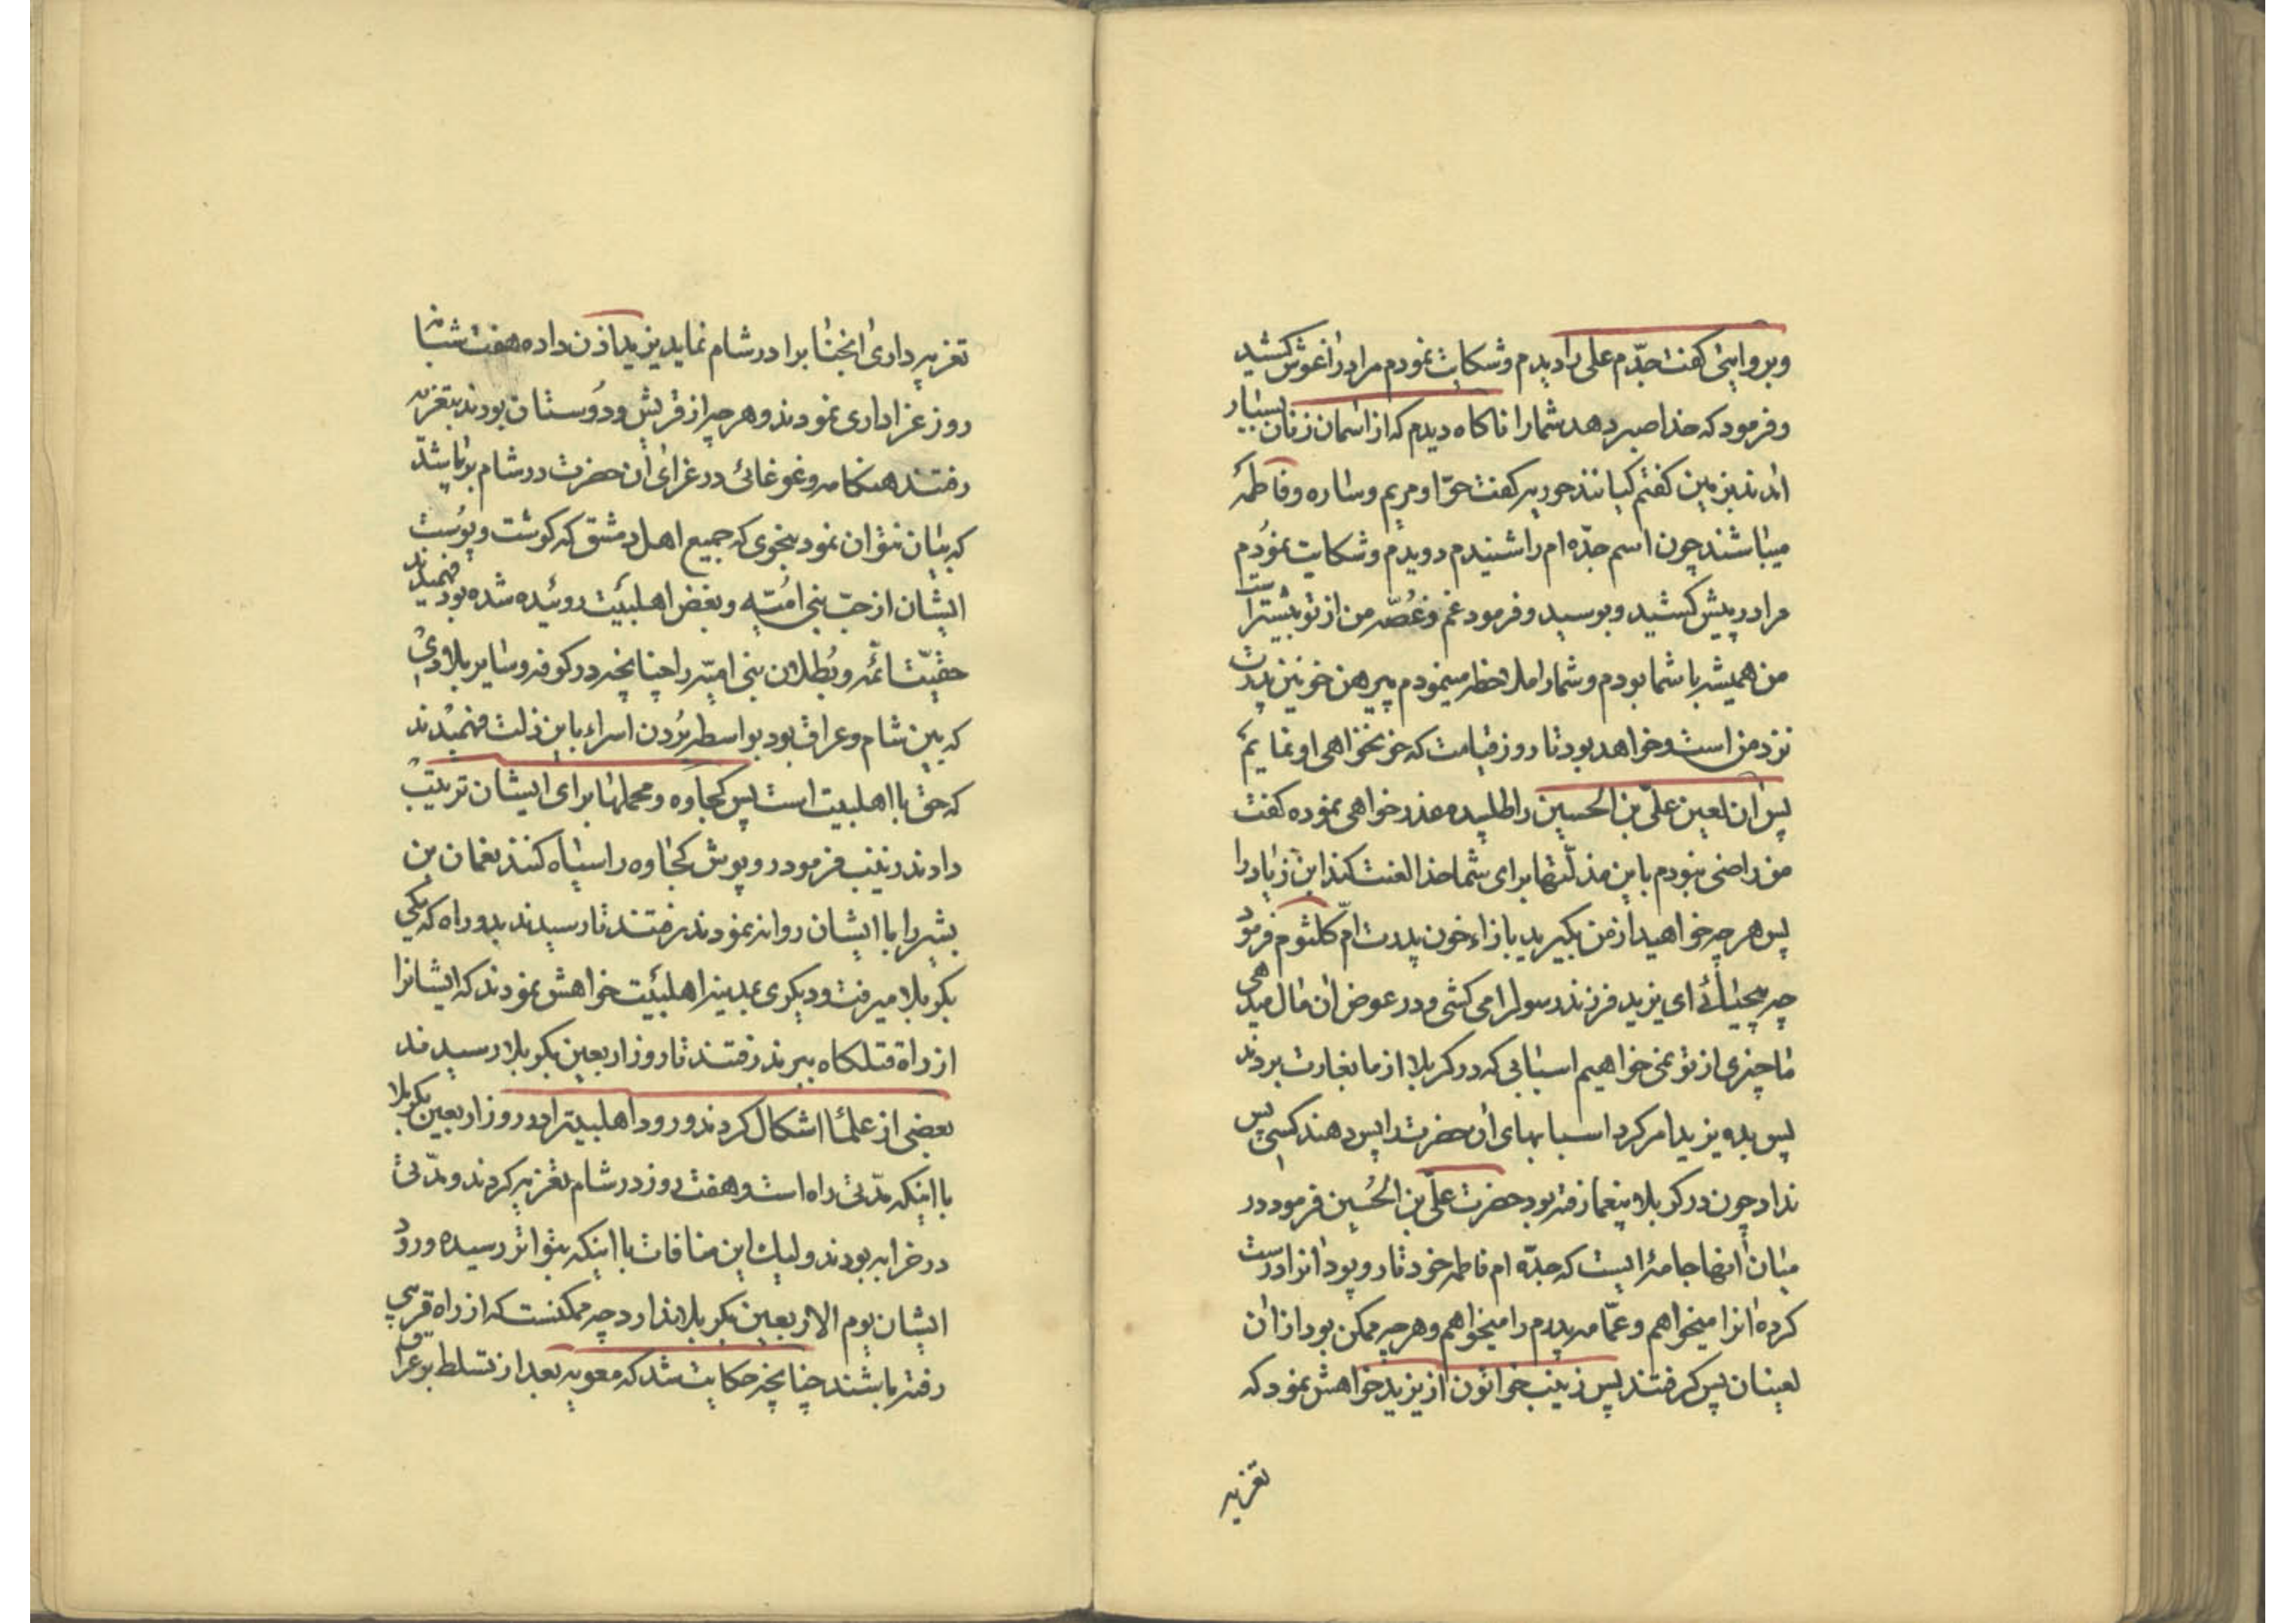 وبروایتی کفت جدّم علی را دیدم وشکایت نمودم مرا در اغوش کشید
وفرمود که خدا صبر دهد شمارا ناکاه دیدم که از اسمان زنان بسیار
امدند بزمین کفتم کیانند حوریه کفت حوّا ومریم وساره وفاطمهٔ
میباشند چون اسم جدّه ام را شنیدم دویدم وشکایت نمودم
مرا در پیش کشید وبوسید وفرمود غم وغصّه من از تو بیشتر است
من همیشه با شما بودم وشمارا ملاحظه مینمودم پیرهن خونین پدرت
نزد من است وخواهد بود تا روز قیامت که خونخواهی او نمایم
پس ان لعین علیّ بن الحسین را طلبیده عذر خواهی نموده کفت
من راضی نبودم باین مذلّتها برای شما خدا لعنت کند ابن زیاد را
پس هر چه خواهید از من بکیرید بازاء خون پدرت امّ کلثوم فرمود
چه بیحیائے ای یزید فرزند رسول را می کشی ودر عوض ان مال میدهی
ما چیزی از تو نمی خواهیم اسبابی که در کربلا از ما بغارت بردند
پس بده یزید امر کرد اسبابهای ان حضرت را پس دهند کسی پس
نداد چون در کربلا بیغما رفته بود حضرت علیّ بن الحسین فرمود در
میان انها جامهٔ ایست که جدّه ام فاطمه خود تار وپود انرا درست
کرده انرا میخواهم وعمّامه پدرم را میخواهم وهر چه ممکن بود از ان
لعینان پس کرفتند پس زینب خواتون از یزید خواهش نمود که
تعزیه
تعزیه داری انجنابرا در شام نماید یزید اذن داده هفت شبانه
روز عزاداری نمودند وهر چه از قریش ودوستان بودند بتعزیه
رفتند هنکامه وغوغائی در عزای ان حضرت در شام برپا شد
که بیان نتوان نمود بنحوی که جمیع اهل دمشق که کوشت وپوست
ایشان از حبّ بنی امیّه وبغض اهلبیت روئیده شده بود فهمیدند
حقیّت ائمّه وبطلان بنی امیّه را چنانچه در کوفه وسایر بلادی
که بین شام وعراق بود بواسطه بردن اسراء باین ذلت فهمیدند
که حق با اهلبیت است پس کجاوه ومحملها برای ایشان ترتیب
دادند زینب فرمود روپوش کجاوه را سیاه کنند نعمان بن
بشیر را با ایشان روانه نمودند رفتند تا رسیدند بدو راه که یکی
بکربلا میرفت ودیکری بمدینه اهلبیت خواهش نمودند که ایشانرا
از راه قتلکاه ببرند رفتند تا روز اربعین بکربلا رسیدند
بعضی از علما اشکال کردند ورود اهلبیترا در روز اربعین بکربلا
با اینکه مدّتی راه است وهفت روز در شام تعزیه کردند ومدّتی
در خرابه بودند ولیك این منافات با اینکه بتواتر رسیده ورود
ایشان یوم الاربعین بکربلا ندارد چه ممکنست که از راه قربی
رفته باشند چنانچه حکایت شد که معویه بعد از تسلط بر عراق